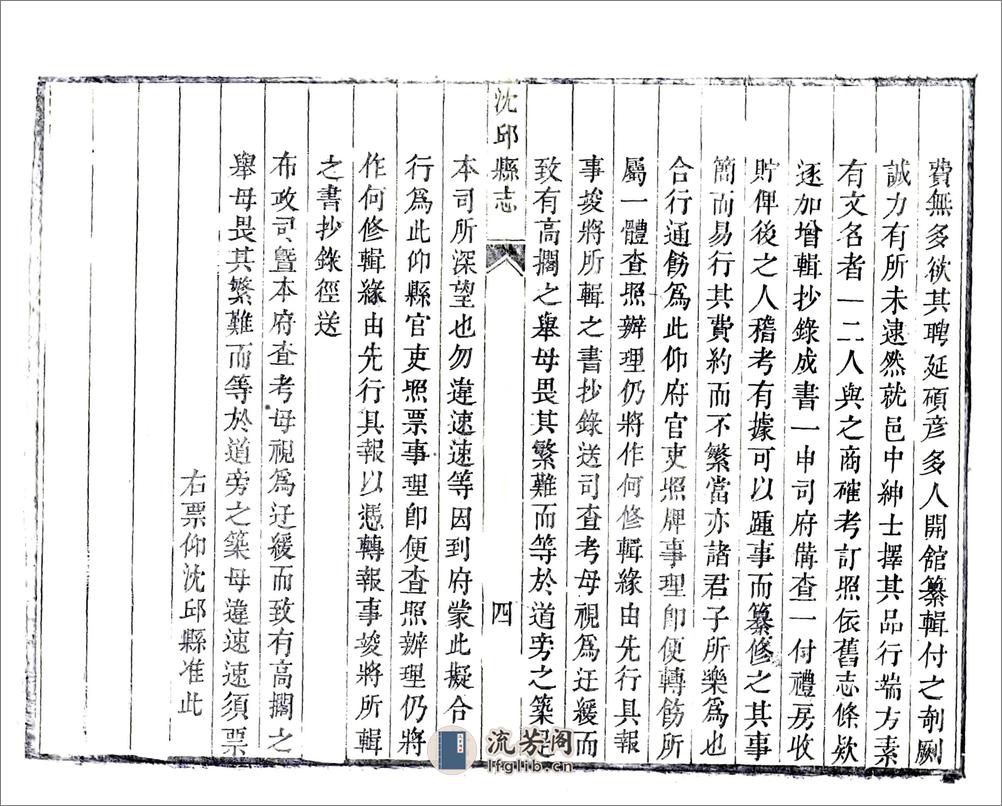 費無多欲其聘延碩彥多人開館纂輯付之剞劂
誠力有所未逮然就邑中紳士擇其品行端方素
有文名者一二人與之商確考訂照依舊志條欵
逐加增輯抄錄成書一申司府備查一付禮房收
貯俾後之人稽考有據可以踵事而纂修之其事
簡而易行其費約而不繁當亦諸君子所樂為也
合行通飭為此仰府官吏照牌事理卽便轉飭所
屬一體查照辦理仍將作何修輯緣由先行具報
事竣將所輯之書抄錄送司查考毋視為迂緩而
致有高擱之舉毋畏其繁難而等於道旁之築是
沈邱縣志
四
本司所深望也勿違速速等因到府蒙此擬合
行為此仰縣官吏照票事理卽便查照辦理仍將
作何修輯緣由先行具報以憑轉報事竣將所輯
之書抄錄徑送
布政司暨本府查考毋視為迂緩而致有高擱之
舉毋畏其繁難而等於道旁之築毋違速速須票
右票仰沈邱縣准此
流芳阁
lfglib.cn